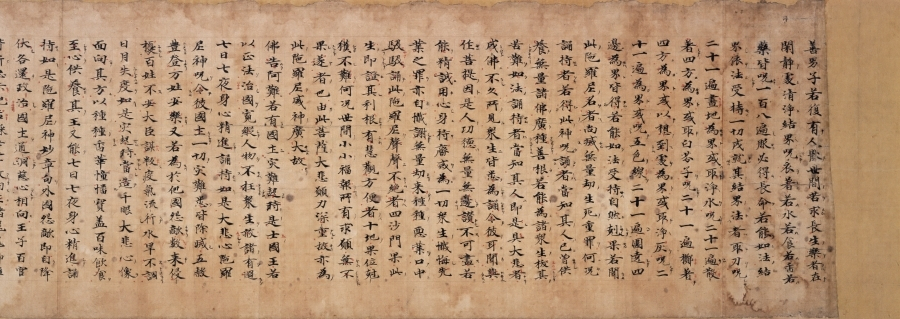 善男子若復有人猒世間苦求長生樂者在
閑靜處清淨結界呪衣著若水若食若香若
藥皆呪一百八遍服必得長命若能如法結
界依法受持一切成就其結界法者取刀呪
二十一遍畫地為界或取淨水呪二十一遍散
著四方為界或取白芥子呪二十一遍擲著
四方為界或以想到處為界或取淨灰呪二
十一遍為界或呪五色線二十一遍圍遶四
邊為界皆得若能如法受持自然剋果若聞
此陀羅尼名者尚滅無量劫生死重罪何況
誦持者若得此神呪誦者當知其人已曾供
養無量諸佛廣種善根若能為諸衆生拔其
苦難如法誦持者當知其人即是具大悲者
成佛不久所見衆生皆悉為誦令彼耳聞與
作菩提因是人功德無量無邊讚不可盡若
能精誠用心身持齋戒為一切衆生懺悔先
業之罪亦自懺謝無量劫來種種惡業口中
馺馺誦此陀羅尼聲聲不絕者四沙門果此
生即證其利根有慧觀方便者十地果位剋
獲不難何況世間小小福報所有求願無不
果遂者也由此菩薩大悲願力深重故亦為
此陀羅尼威神廣大故
佛告阿難若有國土災難起時是土國王若
以正法治國寬縱人物不枉衆生赦諸有過
七日七夜身心精進誦持如是大悲心陀羅
尼神呪令彼國土一切災難悉皆除滅五穀
豊登万姓安樂又若為於他國怨敵數來侵
擾百姓不安大臣謀叛疫氣流行水旱不調
日月失度如是災起時當造千眼大悲心像
面向其方以種種香華幢幡寶蓋百味飲食
至心供養其王又能七日七夜身心精進誦
持如是陀羅尼神妙章句外國怨敵即自降
伏各還政治國土通同慈心相向王子百官